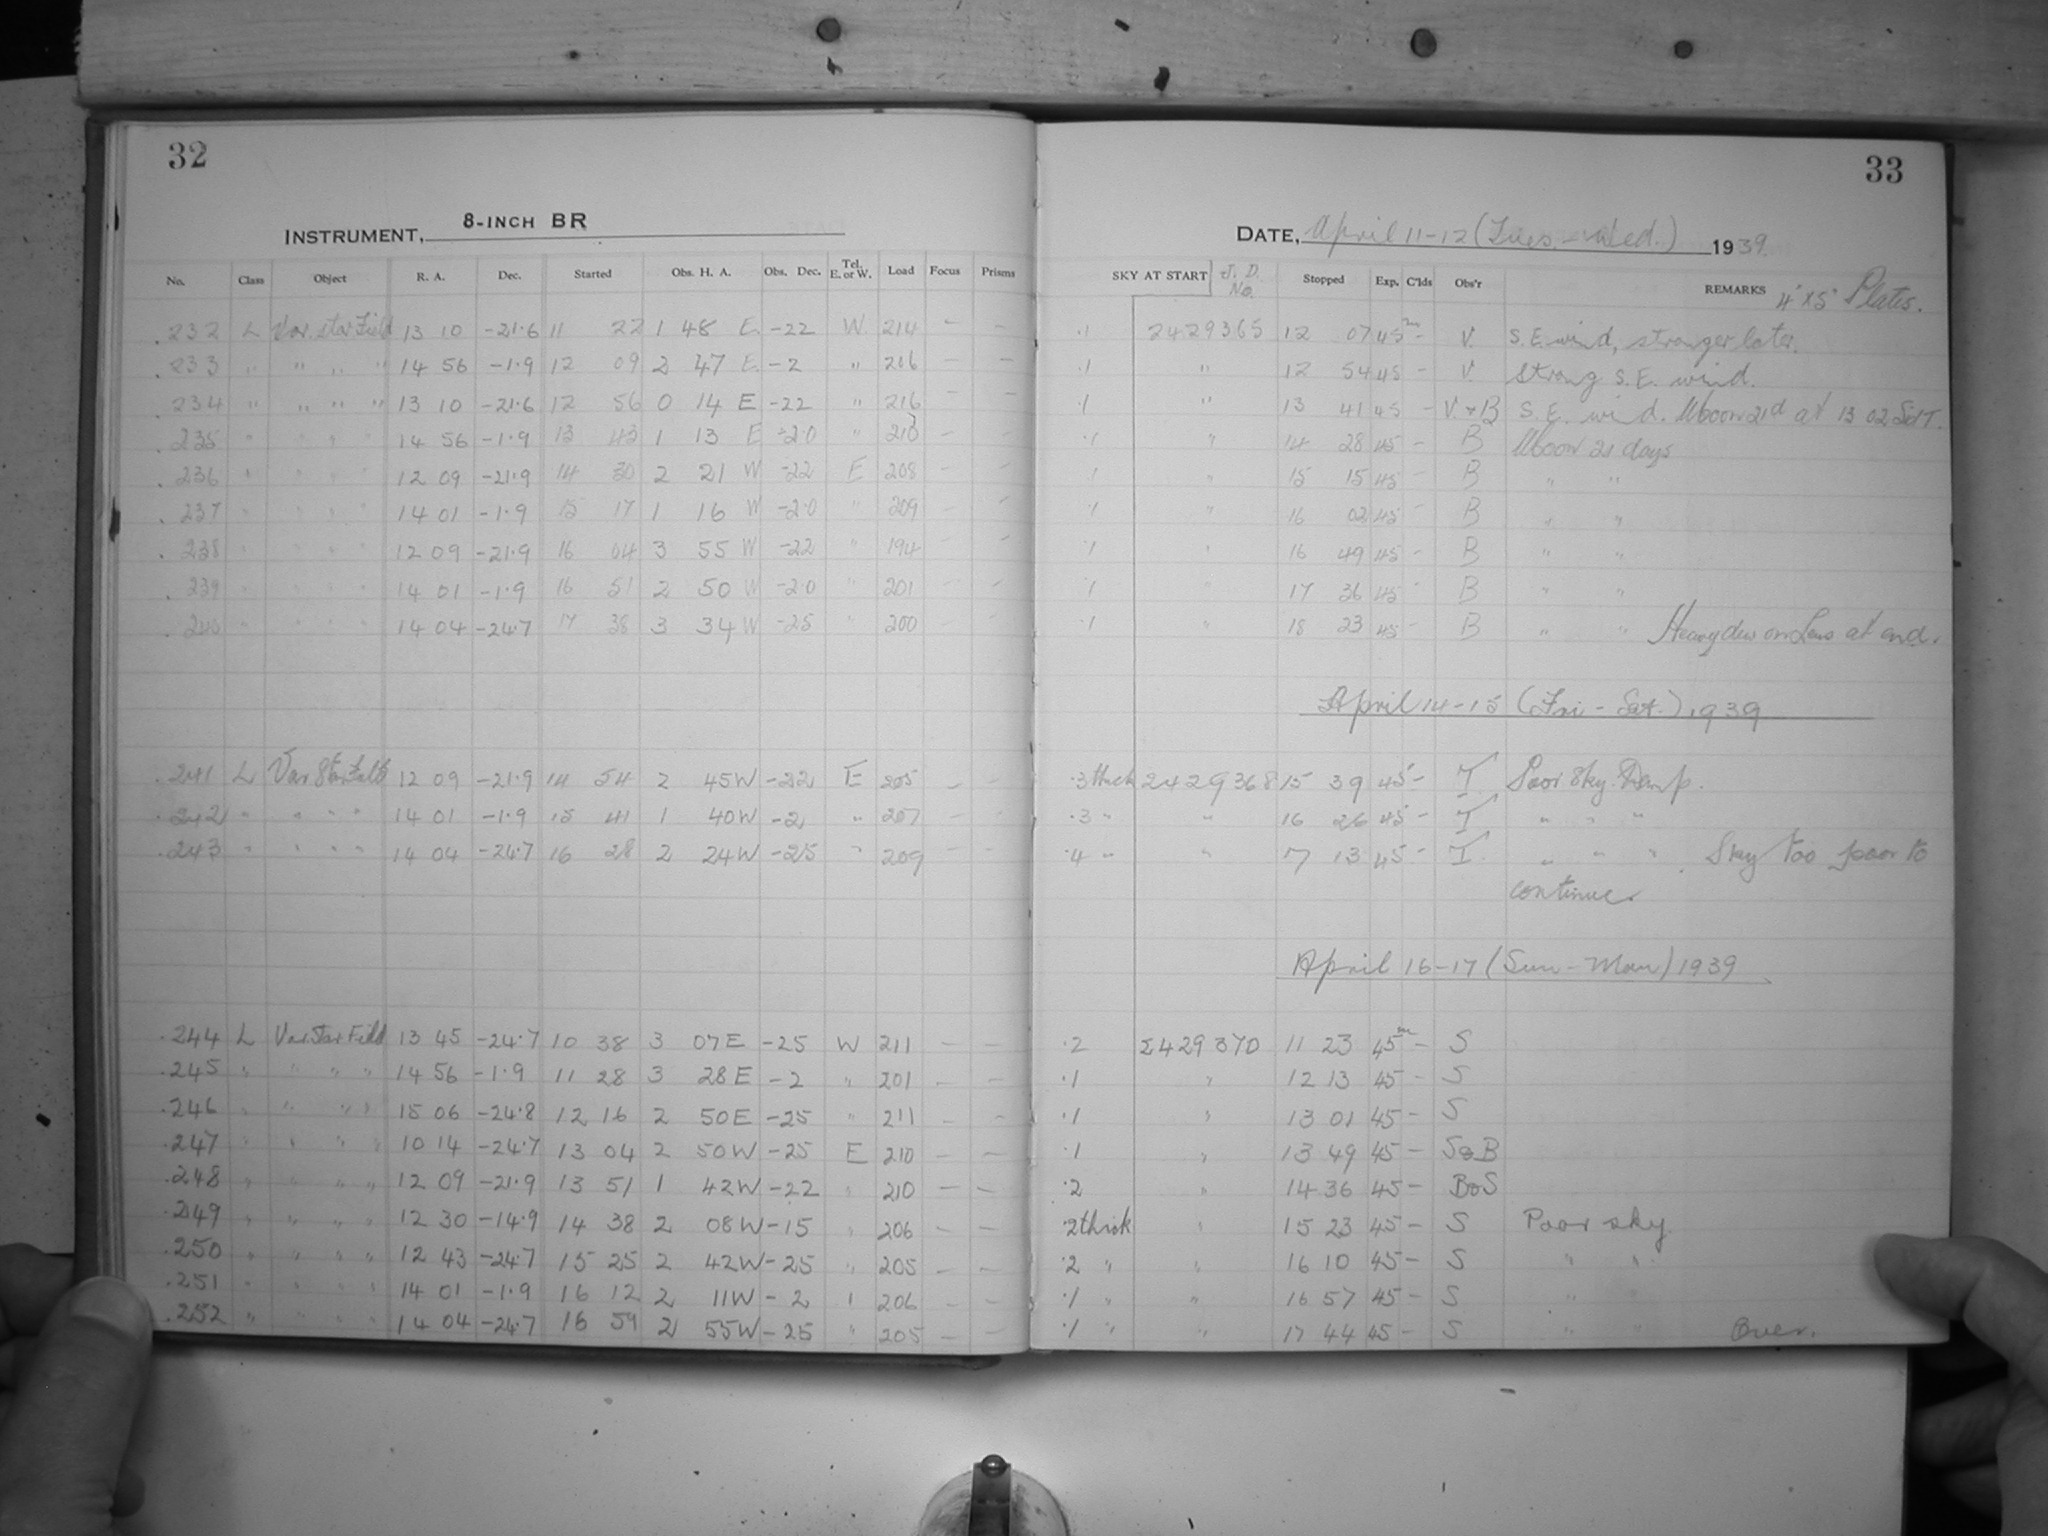 32
33
INSTRUMENT, 8-INCH BR
DATE, April 11-12 (Tues.-Wed.) 1939.
No. Class Object R. A. Dec. Started Obs. H. A. Obs. Dec. Tel. E. or W. Load Focus Prisms SKY AT START J. D. No. Stopped Exp. C'lds Obs'r REMARKS 4" x 5" Plates.
232 L Var. star Field 13 10 -21.6 11 22 1 48 E -22 W 214 - - .1 2429365 12 07 45m - V. S.E. wind, stronger later.
233 " " " " 14 56 -1.9 12 09 2 47 E -2 " 206 - - .1 " 12 54 45 - V. Strong S.E. wind.
234 " " " " 13 10 -21.6 12 56 0 14 E -22 " 216 - - .1 " 13 41 45 - V+B S.E. wind. Moon 21d at 13 02 Sid T.
235 " " " " 14 56 -1.9 13 43 1 13 E -2.0 " - - .1 " 14 28 45 - B Moon 21 days
236 " " " " 12 09 -21.9 14 30 2 21 W -22 E 208 - - .1 " 15 15 45 - B " "
237 " " " " 14 01 -1.9 15 17 1 16 W -2.0 " 209 - - .1 " 16 02 45 - B " "
238 " " " " 12 09 -21.9 16 04 3 55 W -22 " 194 - - .1 " 16 49 45 - B " "
239 " " " " 14 01 -1.9 16 51 2 50 W -2.0 " 201 - - .1 " 17 36 45 - B " "
240 " " " " 14 04 -24.7 17 38 3 34 W -25 " 200 - - .1 " 18 23 45 - B " " Heavy dew on Lens at end.
April 14-15 (Fri-Sat.) 1939
241 L Var Star 12 09 -21.9 14 54 2 45 W -22 E 205 - - .3 thick 2429368 15 39 45 - T Poor Sky. Damp.
242 " " " " 14 01 -1.9 15 41 1 40 W -2 " 207 - - .3 " " 16 26 45 - T " " "
243 " " " " 14 04 -24.7 16 28 2 24 W -25 " 209 - - .4 " " 17 13 45 - T " " " Sky too poor to
continue.
April 16-17 (Sun-Mon) 1939
244 L Var. Star Field 13 45 -24.7 10 38 3 07 E -25 W 211 - - .2 2429370 11 23 45m - S
245 " " " " 14 56 -1.9 11 28 3 28 E -2 " 201 - - .1 " 12 13 45 - S
246 " " " " 15 06 -24.8 12 16 2 50 E -25 " 211 - - .1 " 13 01 45 - S
247 " " " " 10 14 -24.7 13 04 2 50 W -25 E 210 - - .1 " 13 49 45 - S&B
248 " " " " 12 09 -21.9 13 51 1 42 W -22 " 210 - - .2 " 14 36 45 - B&S
249 " " " " 12 30 -14.9 14 38 2 08 W -15 " 206 - - .2 thick " 15 23 45 - S Poor sky
250 " " " " 12 43 -24.7 15 25 2 42 W -25 " 205 - - .2 " " 16 10 45 - S " "
251 " " " " 14 01 -1.9 16 12 2 11 W -2 " 206 - - .1 " " 16 57 45 - S " "
252 " " " " 14 04 -24.7 16 59 2 55 W -25 " 205 - - .1 " " 17 44 45 - S " " Over.